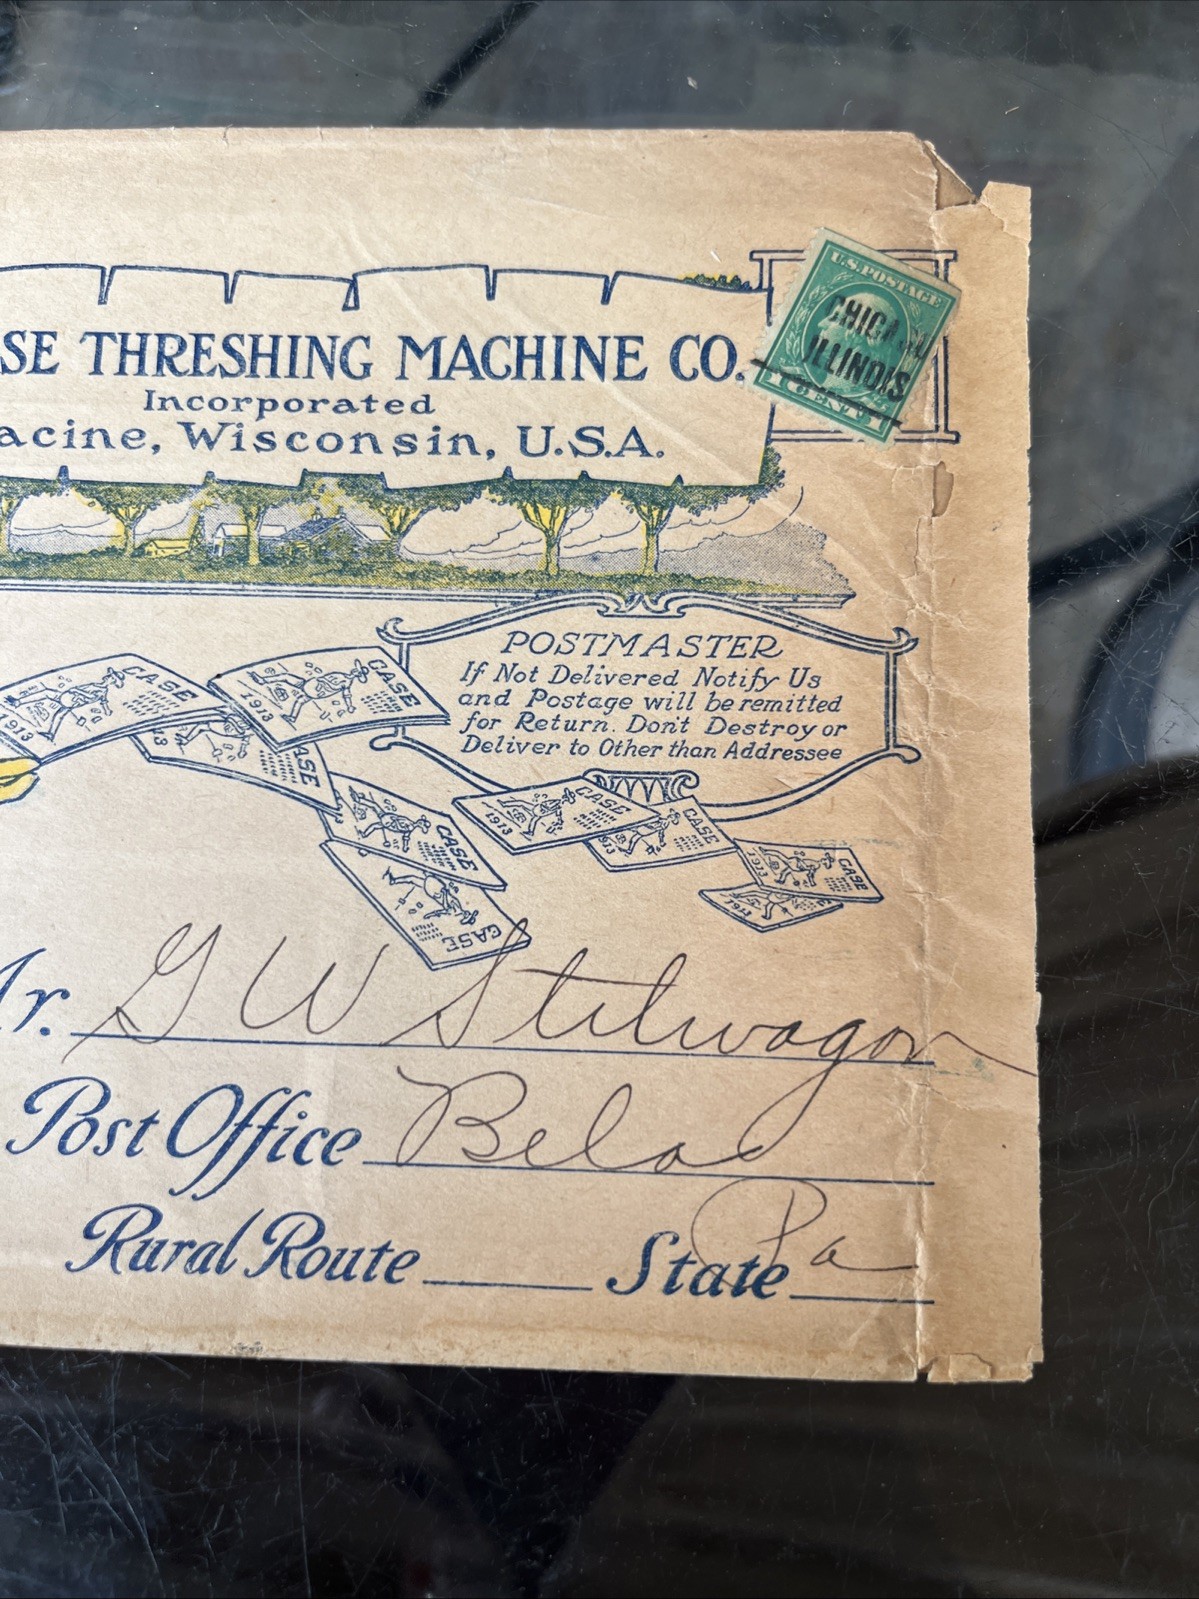 U.S. POSTAGE
CHICA
ILLINOIS
1 CENT 1
SE THRESHING MACHINE CO.
Incorporated
acine, Wisconsin, U.S.A.
POSTMASTER
If Not Delivered Notify Us
and Postage will be remitted
for Return. Don't Destroy or
Deliver to Other than Addressee
CASE
1913
CASE
1913
ASE
13
CASE
CASE
CASE
1913
CASE
913
CASE
1913
1913
Mr. G W Stilwagon
Post Office Bela
Rural Route State Pa